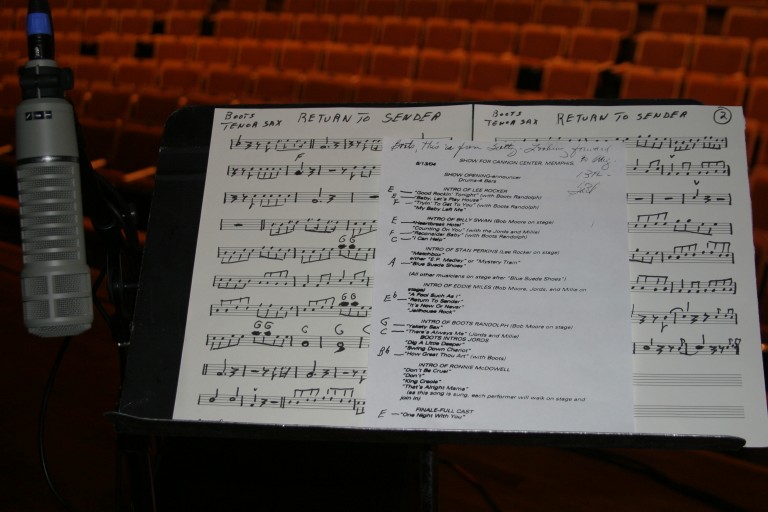 BOOTS
TENOR SAX
RETURN TO SENDER
BOOTS
TENOR SAX
RETURN TO SENDER
2
Boots, This is from Scotty. Looking forward
to
8/13/04
SHOW FOR CANNON CENTER, MEMPHIS
SHOW OPENING-announcer
Drums-4 Bars
INTRO OF LEE ROCKER
E "Good Rockin' Tonight" (with Boots Randolph)
"Baby, Let's Play House"
F "Tryin' To Get To You" (with Boots Randolph)
"My Baby Left Me"
INTRO OF BILLY SWAN (Bob Moore on stage)
E "Heartbreak Hotel"
"Counting On You" (with the Jords and Millie)
F "Reconsider Baby" (with Boots Randolph)
C "I Can Help"
INTRO OF STAN PERKINS (Lee Rocker on stage)
"Matchbox"
either "E.P. Medley" or "Mystery Train"
A "Blue Suede Shoes"
(All other musicians on stage after "Blue Suede Shoes")
INTRO OF EDDIE MILES (Bob Moore, Jords, and Millie on
stage)
"A Fool Such As I"
Eb "Return To Sender"
"It's Now Or Never"
"Jailhouse Rock"
INTRO OF BOOTS RANDOLPH (Bob Moore on stage)
G "Yakety Sax"
C "There's Always Me" (Jords and Millie)
BOOTS INTROS JORDS
"Dig A Little Deeper"
"Swing Down Chariot"
Bb "How Great Thou Art" (with Boots)
INTRO OF RONNIE McDOWELL
"Don't Be Cruel"
"Don't"
"King Creole"
"That's Alright Mama"
(as this song is sung, each performer will walk on stage and
join in)
FINALE-FULL CAST
E "One Night With You"
F
G G
G G
G G G G C